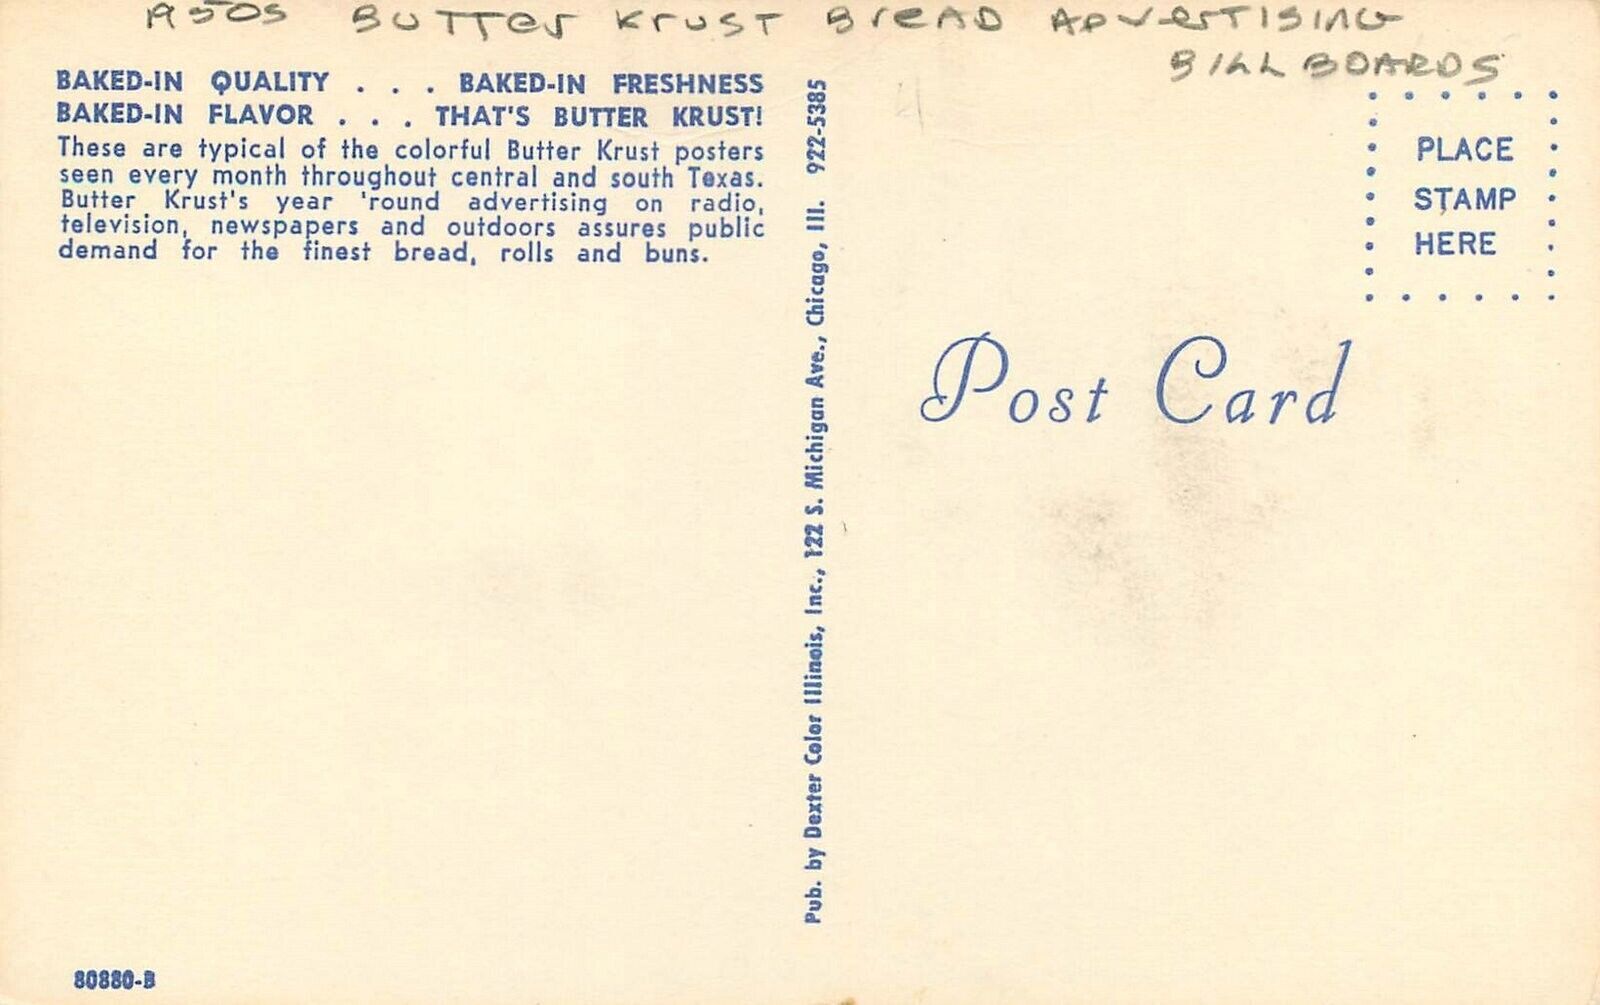 1950s BUTTER KRUST BREAD ADVERTISING
BILLBOARDS
BAKED-IN QUALITY . . . BAKED-IN FRESHNESS
BAKED-IN FLAVOR . . . THAT'S BUTTER KRUST!
These are typical of the colorful Butter Krust posters
seen every month throughout central and south Texas.
Butter Krust's year 'round advertising on radio,
television, newspapers and outdoors assures public
demand for the finest bread, rolls and buns.
80880-B
Pub. by Dexter Color Illinois, Inc., 122 S. Michigan Ave., Chicago, Ill. 922-5385
PLACE
STAMP
HERE
Post Card